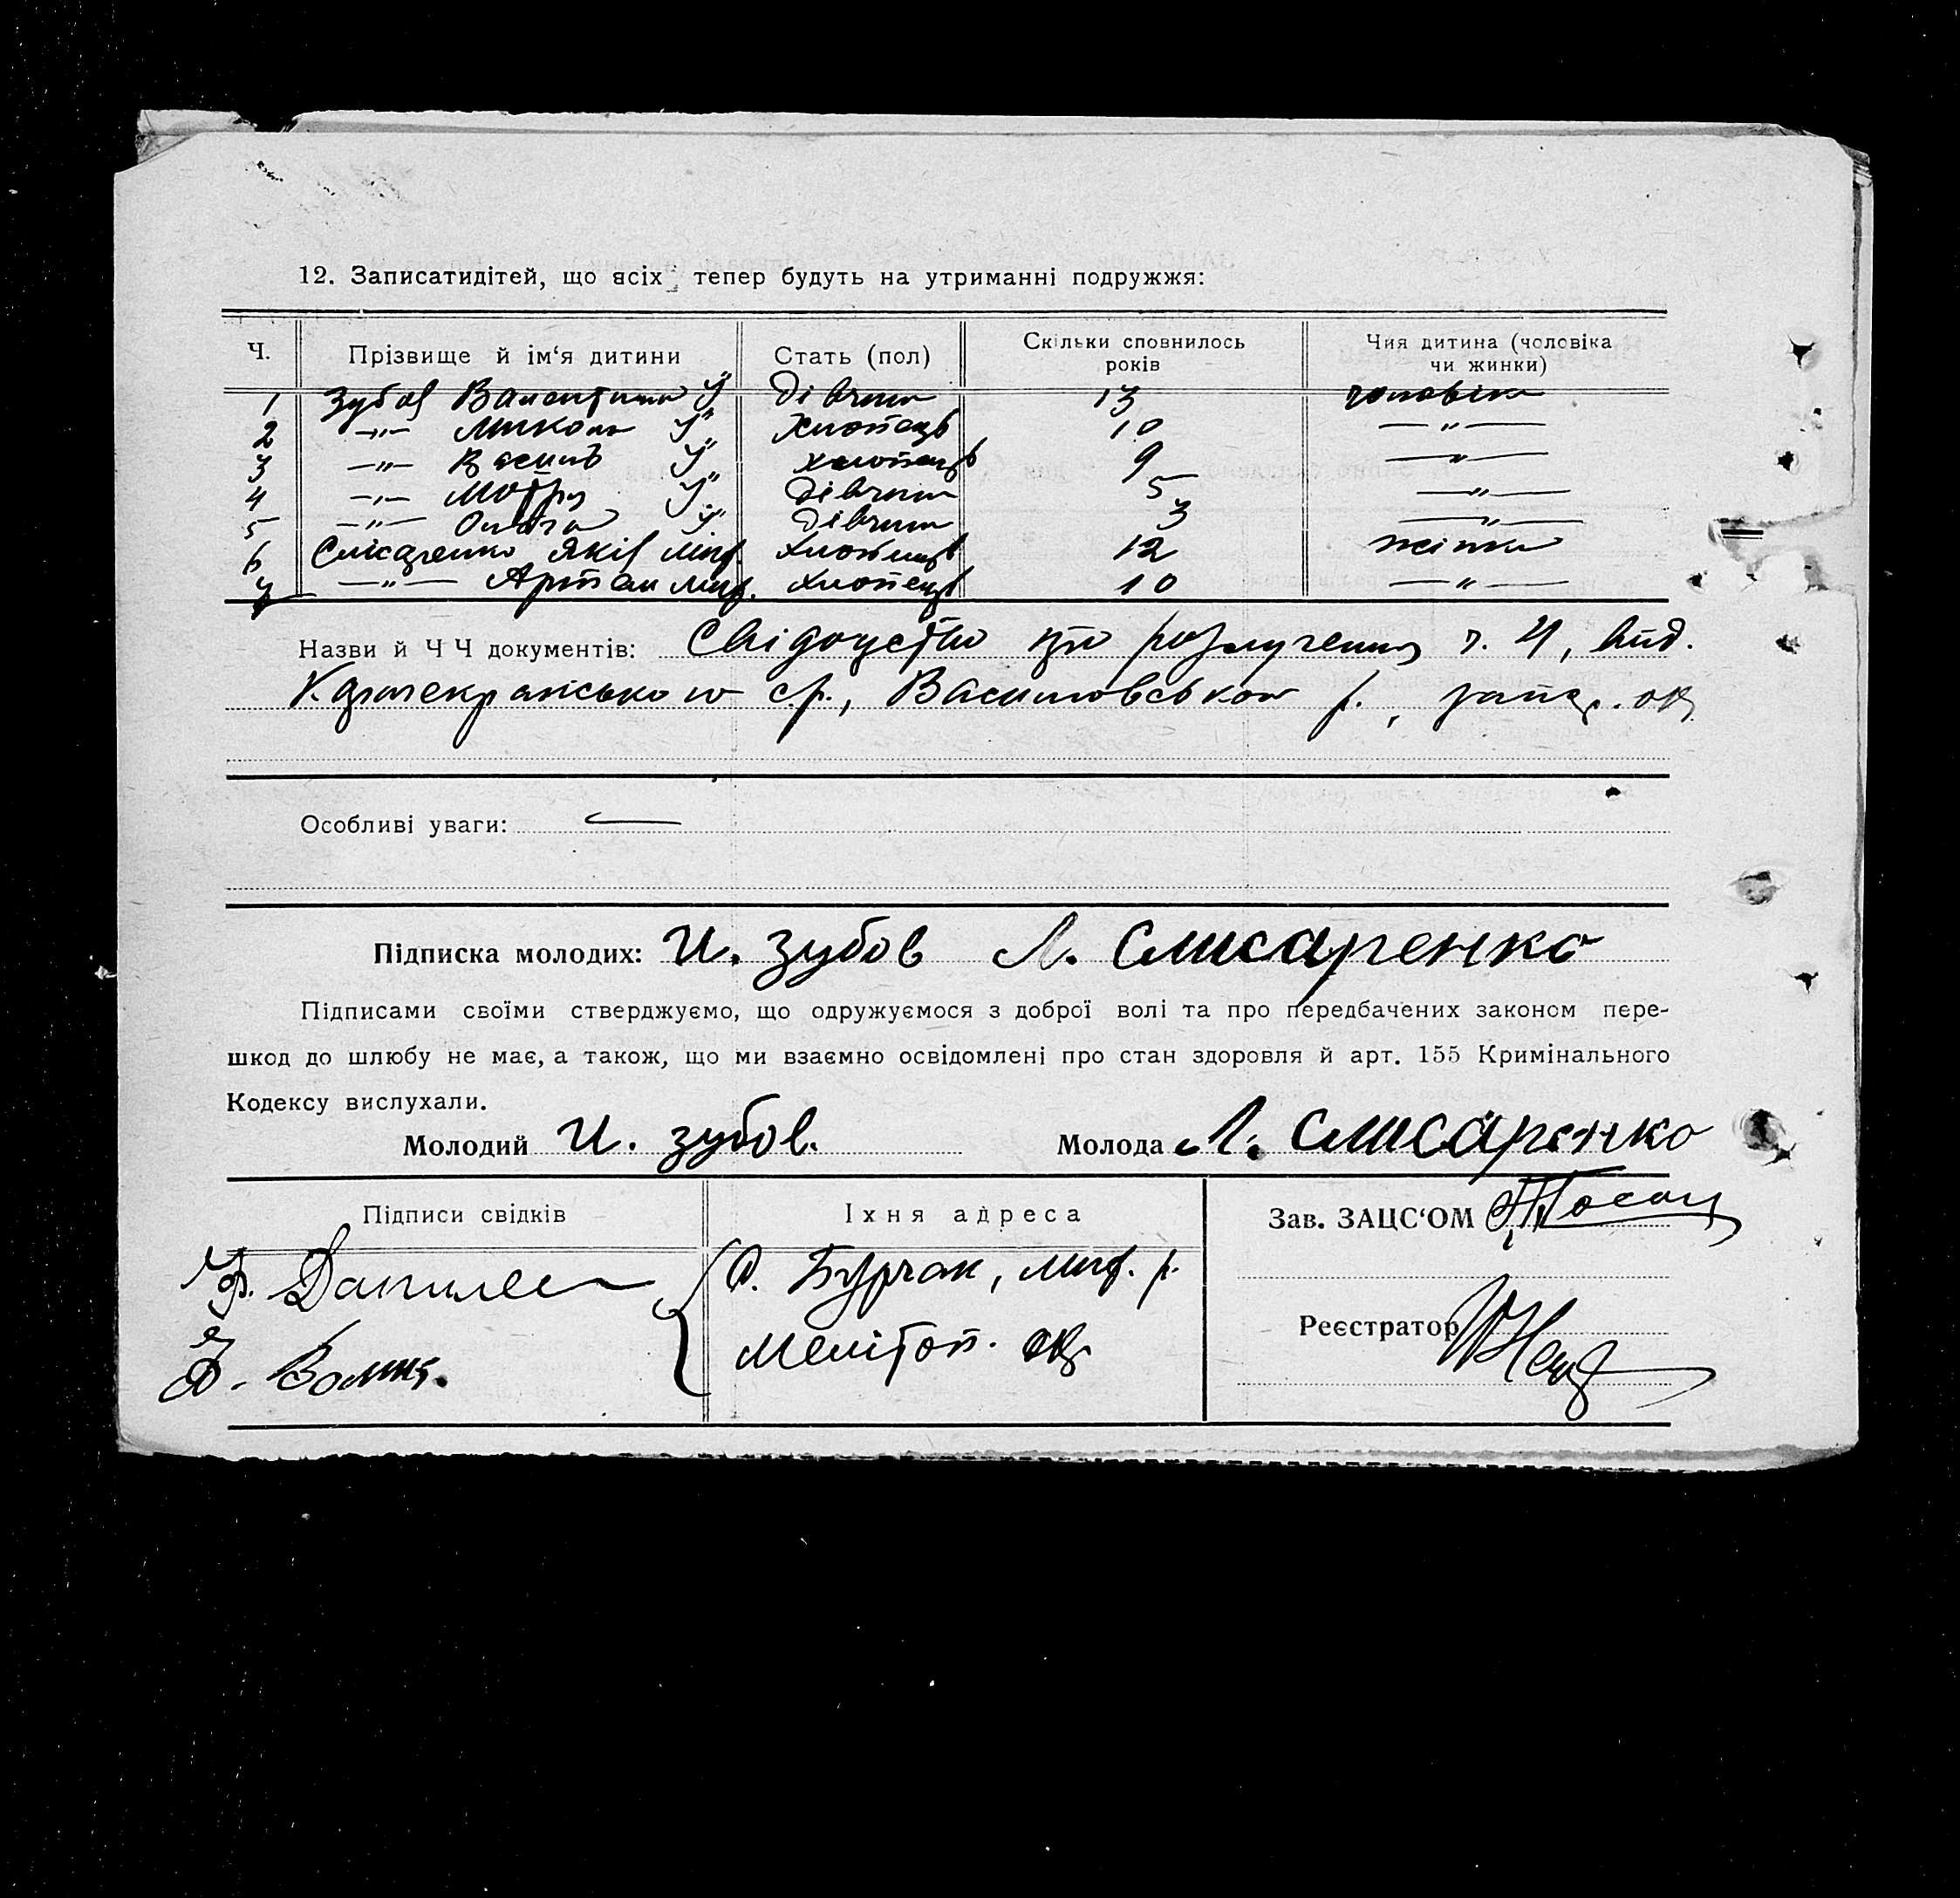 12. Записатидітей, що всіх тепер будуть на утриманні подружжя:
Ч. Прізвище й ім‘я дитини Стать (пол) Скільки сповнилось років Чия дитина (чоловіка чи жинки)
1 Зубов Валентина Дівчина 13 чоловіка
2 —„— Микола Хлопець 10 —„—
3 —„— Василь хлопець 9 —„—
4 —„— Мотря Дівчина 5 —„—
5 —„— Ольга Дівчина 3 —„—
6 Слісаренко Яків Хлопець 12 жінки
7 —„— Хлопець 10 —„—
Назви й Ч Ч документів: Свідоцтво про розлучення ч. 4, вид.
с.р., Василовської р., запор. окр
Особливі уваги: —
Підписка молодих: И. Зубов Л. Слисаренко
Підписами своїми стверджуємо, що одружуємося з доброї волі та про передбачених законом пере-
шкод до шлюбу не має, а також, що ми взаємно освідомлені про стан здоровля й арт. 155 Кримінального
Кодексу вислухали.
Молодий И. Зубов. Молода Л. Слисаренко
Підписи свідків Їхня адреса Зав. ЗАЦС‘ОМ
С. Бурчак, р.
Мелітоп. окр.
Реєстратор